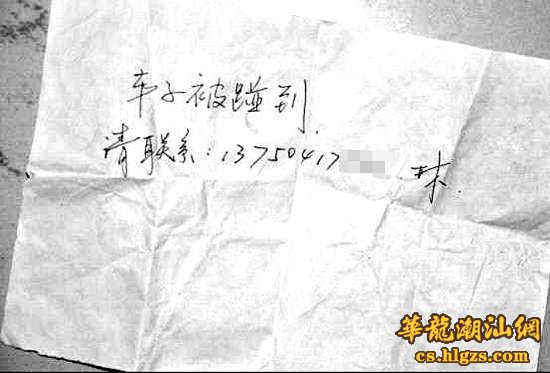 车子被碰到
请联系:13750417
林.
華龍潮汕網
cs.hlgzs.com